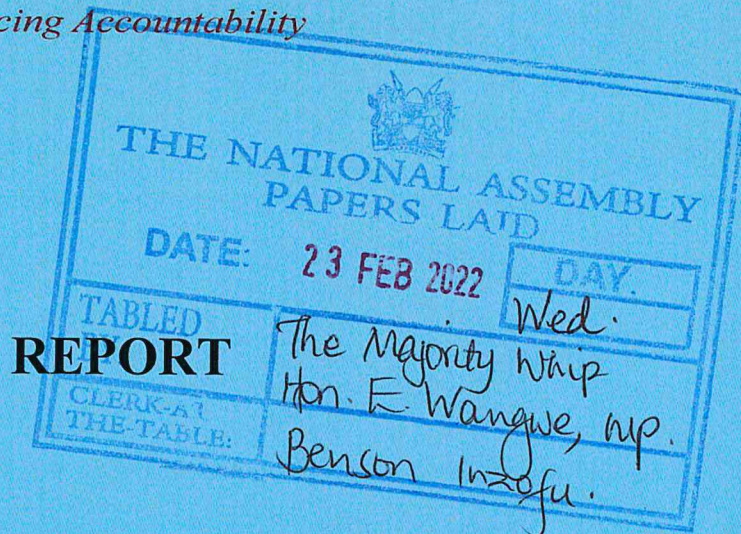 cing Accountability
THE NATIONAL ASSEMBLY
PAPERS LAID
DATE: 23 FEB 2022 DAY.
Wed.
TABLED
The Majority Whip
REPORT
Hon. E. Wangwe, MP.
CLERK-AT
THE-TABLE:
Benson Inzofu.